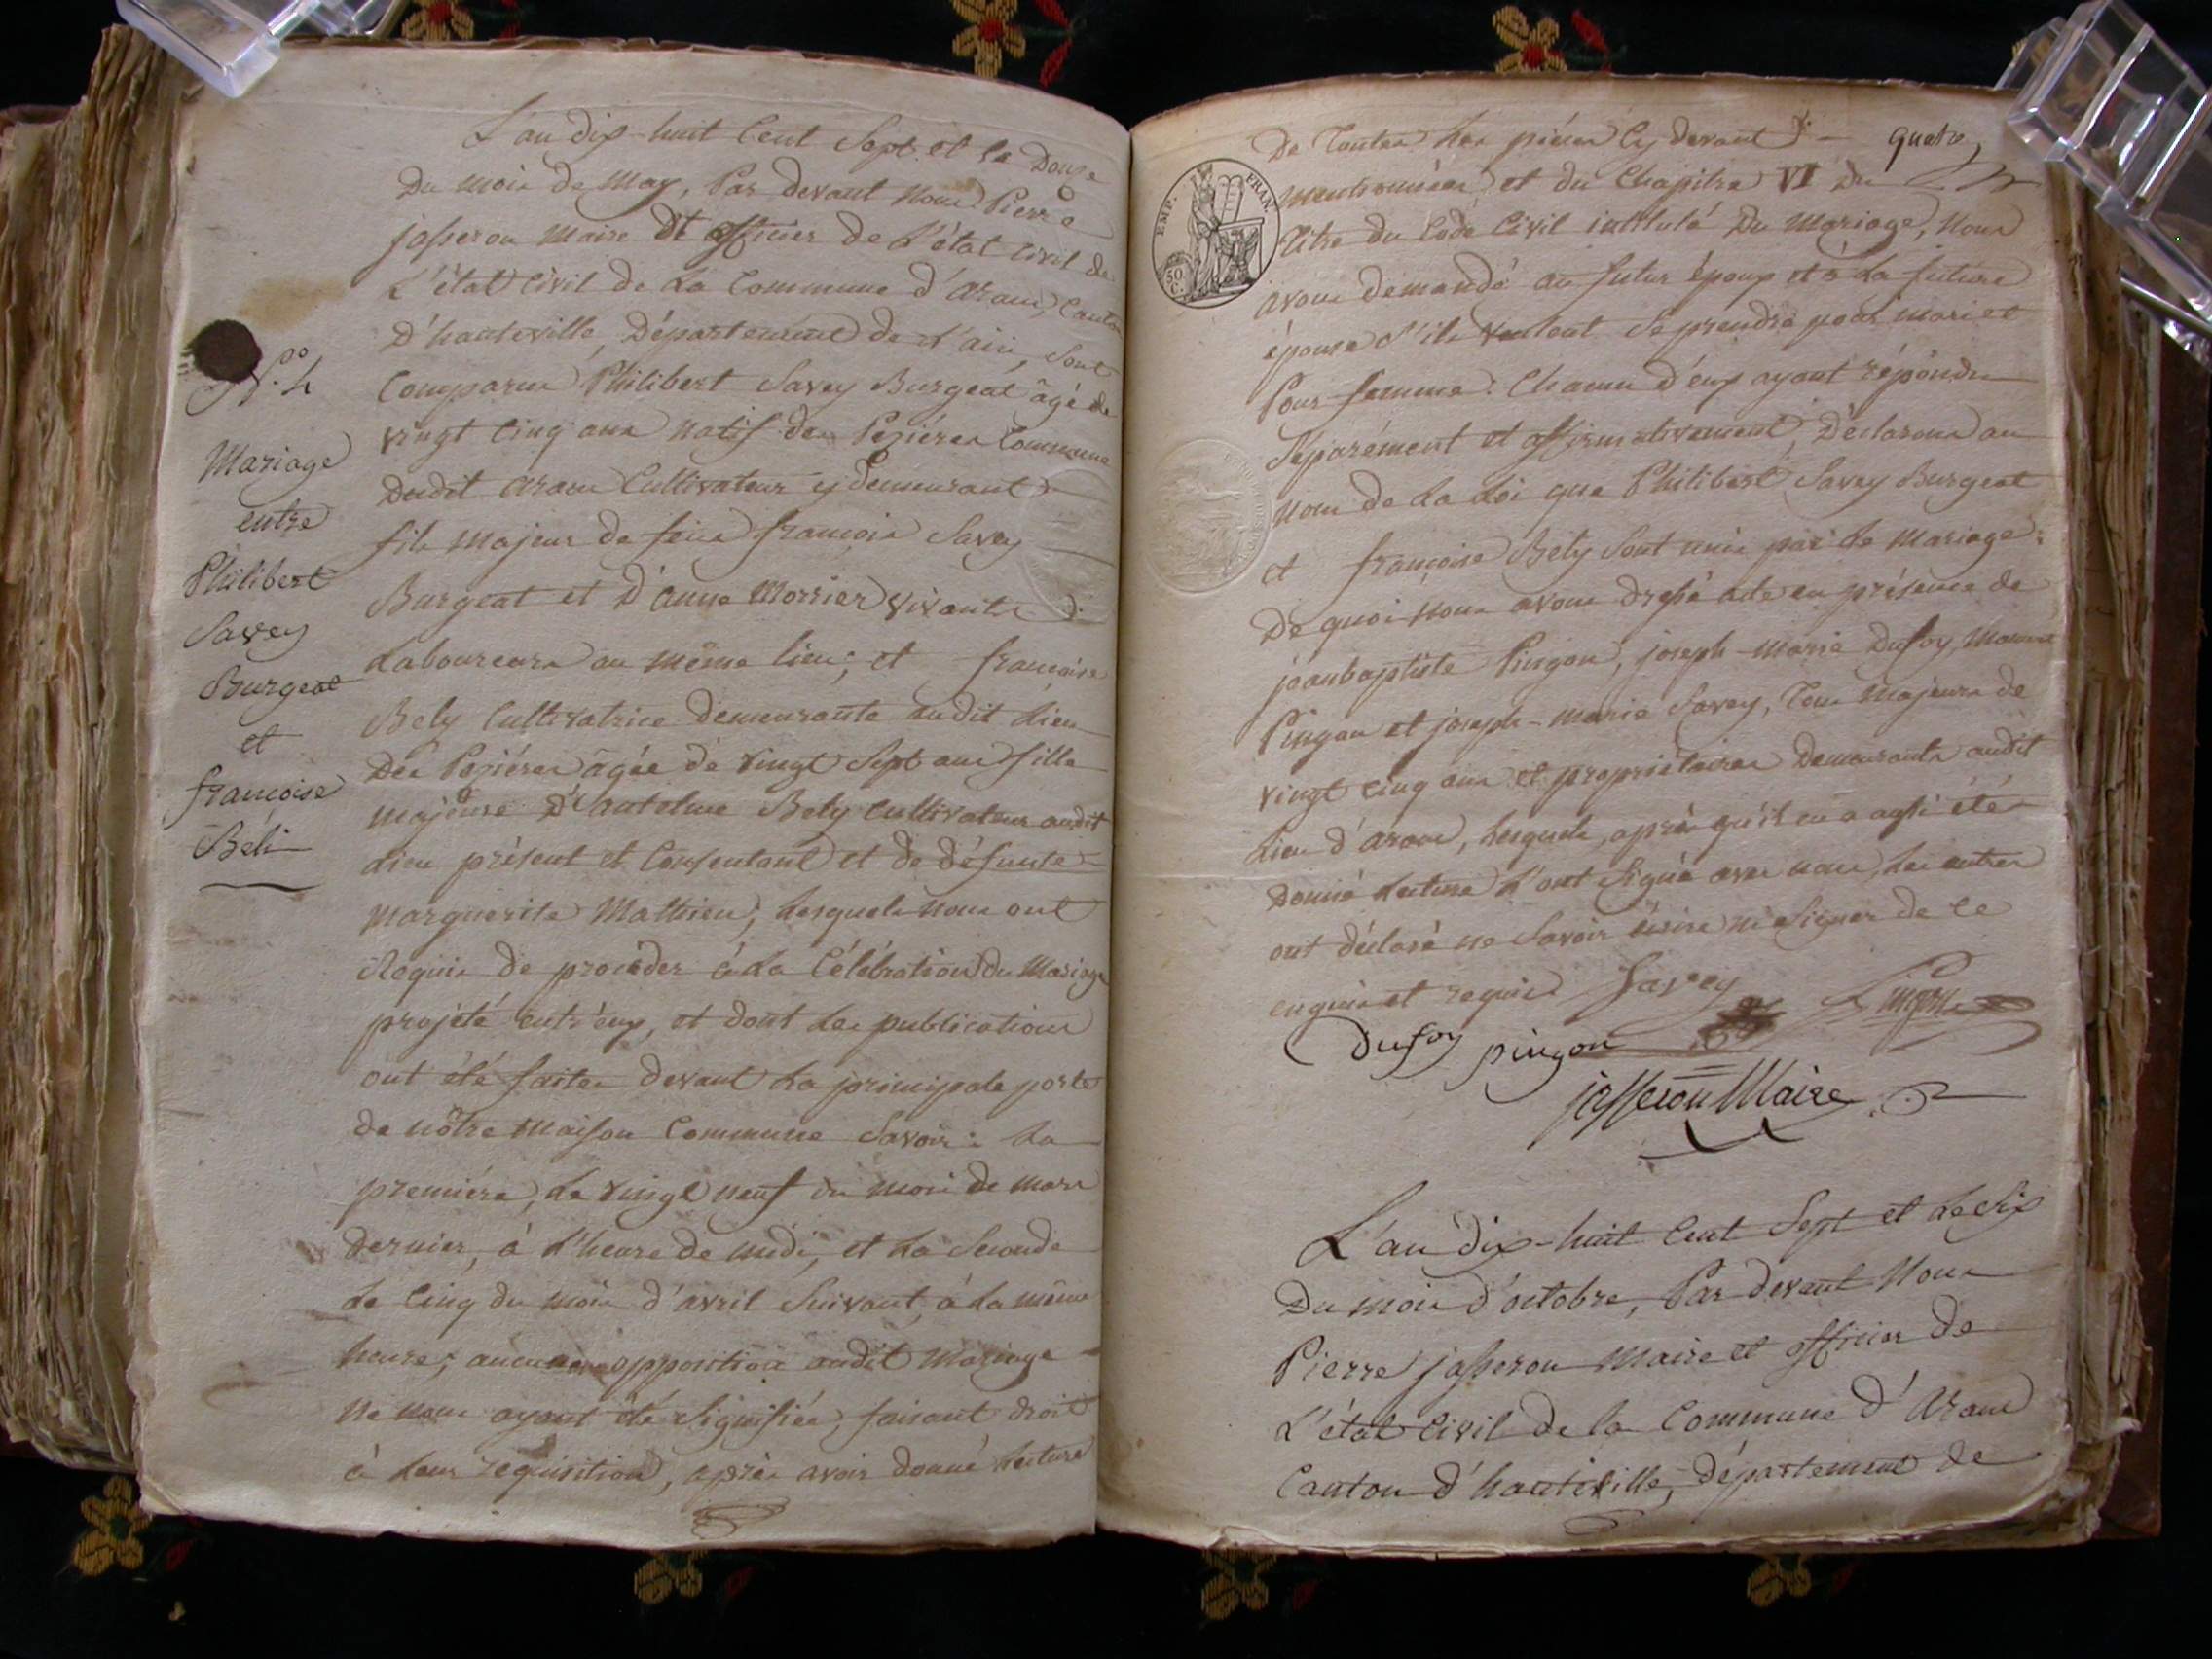 L'an dix-huit Cent Sept et le Douze
Du mois de may, Par devant Nous Pierre
jasseron Maire Et officier de L'état civil de
L'état civil de La Commune d'aranc, Canton
D'hauteville, Département de L'ain, Sont
Comparus Philibert Savey Burgeat âgé de
vingt Cinq ans Natif des Pézières Commune
Dudit aranc Cultivateur y Demeurant
fils majeur de feu françois Savey
Burgeat et D'anne Morrier vivants
Laboureurs au même lieu; et françoise
Bely Cultivatrice Demeurante audit Lieu
Des Pézières âgée de vingt Sept ans fille
majeure D'antelme Bely Cultivateur audit
Lieu présent et Consentant et de défunte
Marguerite Mathieu, Lesquels nous ont
Requis de procéder à La Célébration du Mariage
projeté entr'eux, et dont Les publications
ont été faites devant La principale porte
de nôtre Maison Commune Savoir: La
première, Le vingt neuf du mois de mars
dernier, à L'heure de midi, et La Seconde
Le Cinq du mois d'avril Suivant à La même
heure; aucune opposition audit Mariage
ne nous ayant été Signifiée, faisant droit
à Leur requisition, après avoir donné Lecture
N.º 4
Mariage
entre
Philibert
Savey
Burgeat
et
françoise
Béli
De Toutes Les pièces Cy devant
quatre
EMP. FRAN.
50 C.
Mentionnées et du Chapitre VI du
Titre du Code Civil intitulé Du Mariage, Nous
avons demandé au futur époux et à La future
épouse S'ils veulent Se prendre pour mari et
Pour femme: Chacun d'eux ayant répondu
Séparément et affirmativement, Déclarons au
nom de La Loi que Philibert Savey Burgeat
et françoise Bely Sont unis par Le Mariage:
De quoi nous avons dressé acte en présence de
jeanbaptiste Pingon, joseph-marie Dufoy,
Pingon et joseph-marie Savey, Tous Majeurs de
vingt Cinq ans et propriétaires Demeurants audit
Lieu d'aranc, Lesquels, après qu'il en a aussi été
Donné Lecture L'ont Signé avec nous, Les autres
ont déclaré ne Savoir écrire ni Signer de ce
enquis et requis Savey Pingon
Dufoy pingon
jasseron Maire
L'an dix-huit Cent Sept et Le Six
Du mois d'octobre, Par devant Nous
Pierre jasseron Maire et officier de
L'état Civil de la Commune d'Aranc
Canton d'hauteville, Département de